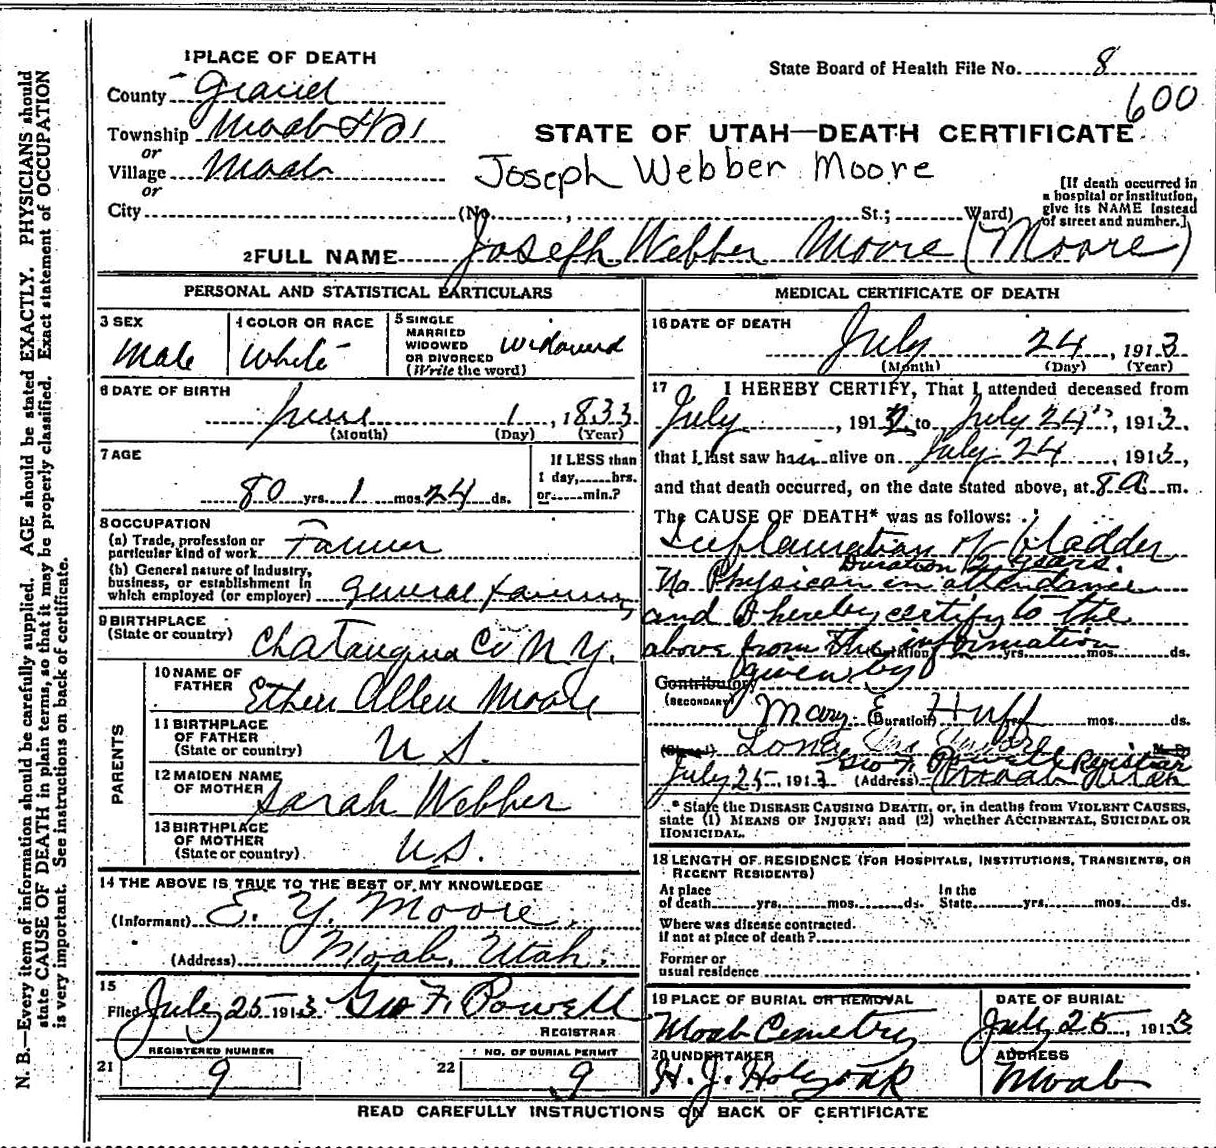 1 PLACE OF DEATH
County Grand
Township Moab
or
Village Moab
or
City (No. , St.; Ward)
State Board of Health File No. 8
600
STATE OF UTAH—DEATH CERTIFICATE
Joseph Webber Moore
[If death occurred in
a hospital or institution,
give its NAME instead
of street and number.]
2 FULL NAME Joseph Webber Moore (Moore)
PERSONAL AND STATISTICAL PARTICULARS
3 SEX
Male
4 COLOR OR RACE
White
5 SINGLE
MARRIED
WIDOWED
OR DIVORCED
(Write the word)
Widowed
6 DATE OF BIRTH
June 1, 1833
(Month) (Day) (Year)
7 AGE
80 yrs. 1 mos. 24 ds.
If LESS than
1 day,......hrs.
or......min.?
8 OCCUPATION
(a) Trade, profession or
particular kind of work Farmer
(b) General nature of industry,
business, or establishment in
which employed (or employer) general farming
9 BIRTHPLACE
(State or country) Chatauqua Co N.Y.
PARENTS
10 NAME OF
FATHER
Ethen Allen Moore
11 BIRTHPLACE
OF FATHER
(State or country)
U S.
12 MAIDEN NAME
OF MOTHER
Sarah Webber
13 BIRTHPLACE
OF MOTHER
(State or country)
U.S.
14 THE ABOVE IS TRUE TO THE BEST OF MY KNOWLEDGE
(Informant) E. Y. Moore
(Address) Moab, Utah.
15
Filed July 25 1913 Geo F. Powell
REGISTRAR
REGISTERED NUMBER
21 9
NO. OF BURIAL PERMIT
22 9
MEDICAL CERTIFICATE OF DEATH
16 DATE OF DEATH
July 24, 1913
(Month) (Day) (Year)
17 I HEREBY CERTIFY, That I attended deceased from
July , 191 to July 24, 1913,
that I last saw him alive on July 24, 1913,
and that death occurred, on the date stated above, at 8 A m.
The CAUSE OF DEATH* was as follows:
Inflamation of bladder
Duration 2 years.
No Physician in attendance
and I hereby certify to the
above from the information
(Duration) yrs. mos. ds.
given by
Contributory
(SECONDARY)
Mary E Huff
(Duration) mos. ds.
(Signed) M.D.
Geo F. Powell Registrar
July 25 1913 (Address) Moab Utah
* State the DISEASE CAUSING DEATH, or, in deaths from VIOLENT CAUSES,
state (1) MEANS OF INJURY; and (2) whether ACCIDENTAL, SUICIDAL OR
HOMICIDAL.
18 LENGTH OF RESIDENCE (FOR HOSPITALS, INSTITUTIONS, TRANSIENTS, OR
RECENT RESIDENTS)
At place
of death......yrs......mos......ds.
In the
State......yrs......mos......ds.
Where was disease contracted.
if not at place of death?
Former or
usual residence
19 PLACE OF BURIAL OR REMOVAL
Moab Cemetry
DATE OF BURIAL
July 25, 1913
20 UNDERTAKER
H. J. Holyoak
ADDRESS
Moab
READ CAREFULLY INSTRUCTIONS ON BACK OF CERTIFICATE
N. B.—Every item of information should be carefully supplied. AGE should be stated EXACTLY. PHYSICIANS should
state CAUSE OF DEATH in plain terms, so that it may be properly classified. Exact statement of OCCUPATION
is very important. See instructions on back of certificate.